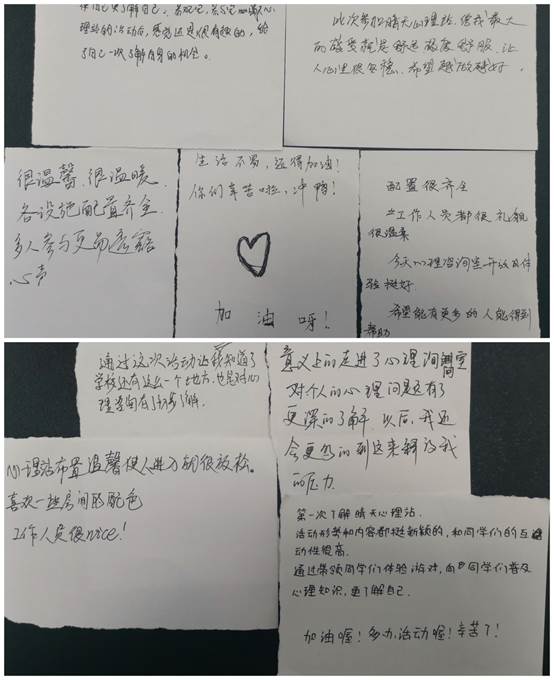 理站的活动后,感觉还是很有趣的,给
了自己一次了解自身的机会。
此次参加晴天心理站,给我最大
的感受就是
人心里很安稳.希望越做越好.
很温馨.很温暖.
各设施配置齐全.
多人参与更易透露
心声
生活不易,还得加油!
你们辛苦啦,冲鸭!
加油呀!
配置很齐全
工作人员都很礼貌
很温柔
今天心理咨询室开放日体
验挺好
希望能有更多的人能得到
帮助
通过这次活动让我知道了
学校还有这么一个地方,也是对心
理咨询有了初步了解.
意义上的走进了心理询空间
对个人的心理问题也有了
更深的了解.以后,我还
会更多的到这来解决我
的压力
心理站布置温馨使人进入就很放松。
喜欢一些房间的配色
工作人员很nice!
第一次了解晴天心理站.
活动形式和内容都挺新颖的,和同学们的互
动性提高.
通过带领同学们体验游戏,向同学们普及
心理知识,更了解自己.
加油喔!多办活动喔!辛苦了!